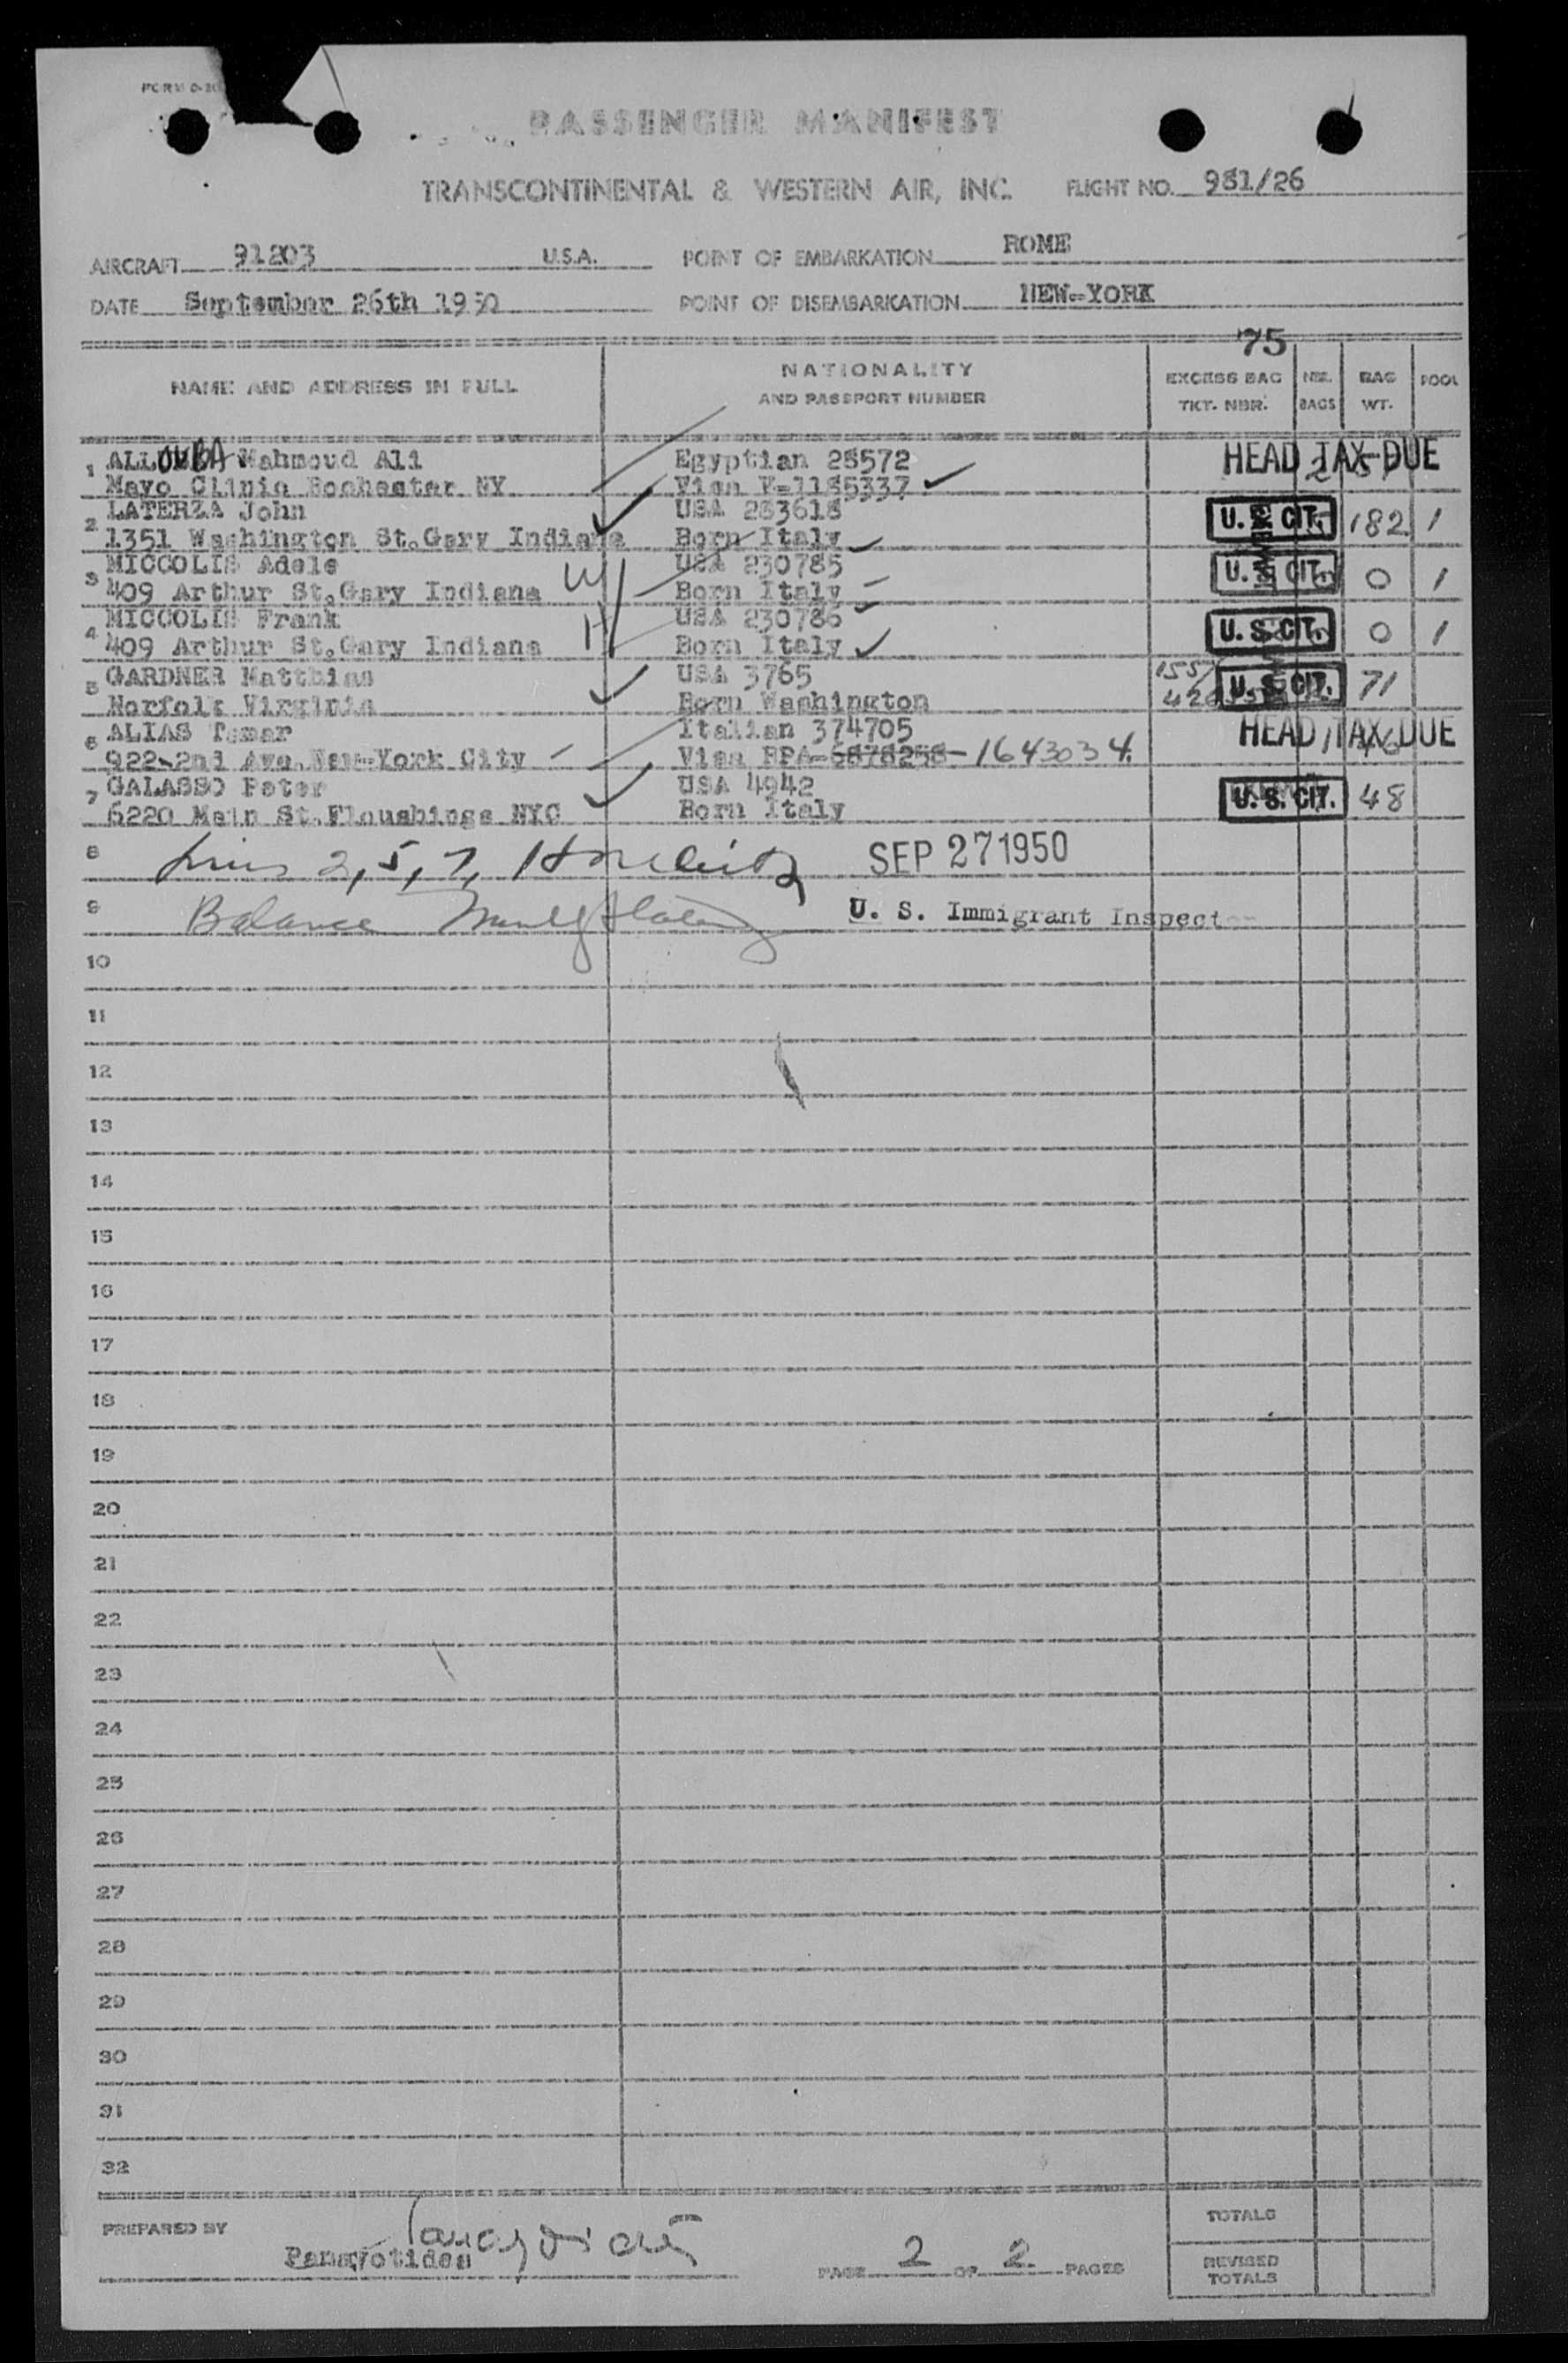 PASSENGER MANIFEST
TRANSCONTINENTAL & WESTERN AIR, INC. FLIGHT NO. 981/26
AIRCRAFT 91203 U.S.A. POINT OF EMBARKATION ROME
DATE September 26th 1950 POINT OF DISEMBARKATION NEW-YORK
75
NAME AND ADDRESS IN FULL NATIONALITY AND PASSPORT NUMBER EXCESS BAG TKT. NBR. NBR. BAGS BAG WT. POOL
1 ALLOUBA Mahmoud Ali Egyptian 28572 HEAD TAX DUE
Mayo Clinic Rochester NY Visa V-1185337
2 LATERZA John USA 283618 U. S. CIT. 182 1
1351 Washington St.Gary Indiana Born Italy
3 MICCOLIS Adele USA 230785 U. S. CIT. 0 1
409 Arthur St.Gary Indiana Born Italy
4 MICCOLIS Frank USA 230786 U. S. CIT. 0 1
409 Arthur St.Gary Indiana Born Italy
5 GARDNER Matthias USA 3765 U. S. CIT. 71
Norfolk Virginia Born Washington
6 ALIAS Tamar Italian 374705 HEAD TAX DUE
922-2nd Ave.New-York City Visa 1643034
7 GALASSO Peter USA 4942 U. S. CIT. 48
6220 Main St.Floushings NYC Born Italy
8 2, 5, 7, SEP 27 1950
9 Balance U. S. Immigrant Inspector
10
11
12
13
14
15
16
17
18
19
20
21
22
23
24
25
26
27
28
29
30
31
32
PREPARED BY Panayotides PAGE 2 OF 2 PAGES
TOTALS
REVISED TOTALS